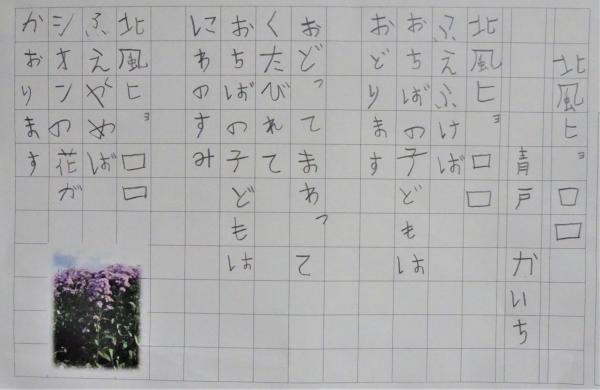 北風ヒョロロ
青戸 かいち
北風ヒョロロ
ふえふけば
おちばの子どもは
おどります
おどってまわって
くたびれて
おちばの子どもは
にわのすみ
北風ヒョロロ
ふえやめば
シオンの花が
かおります